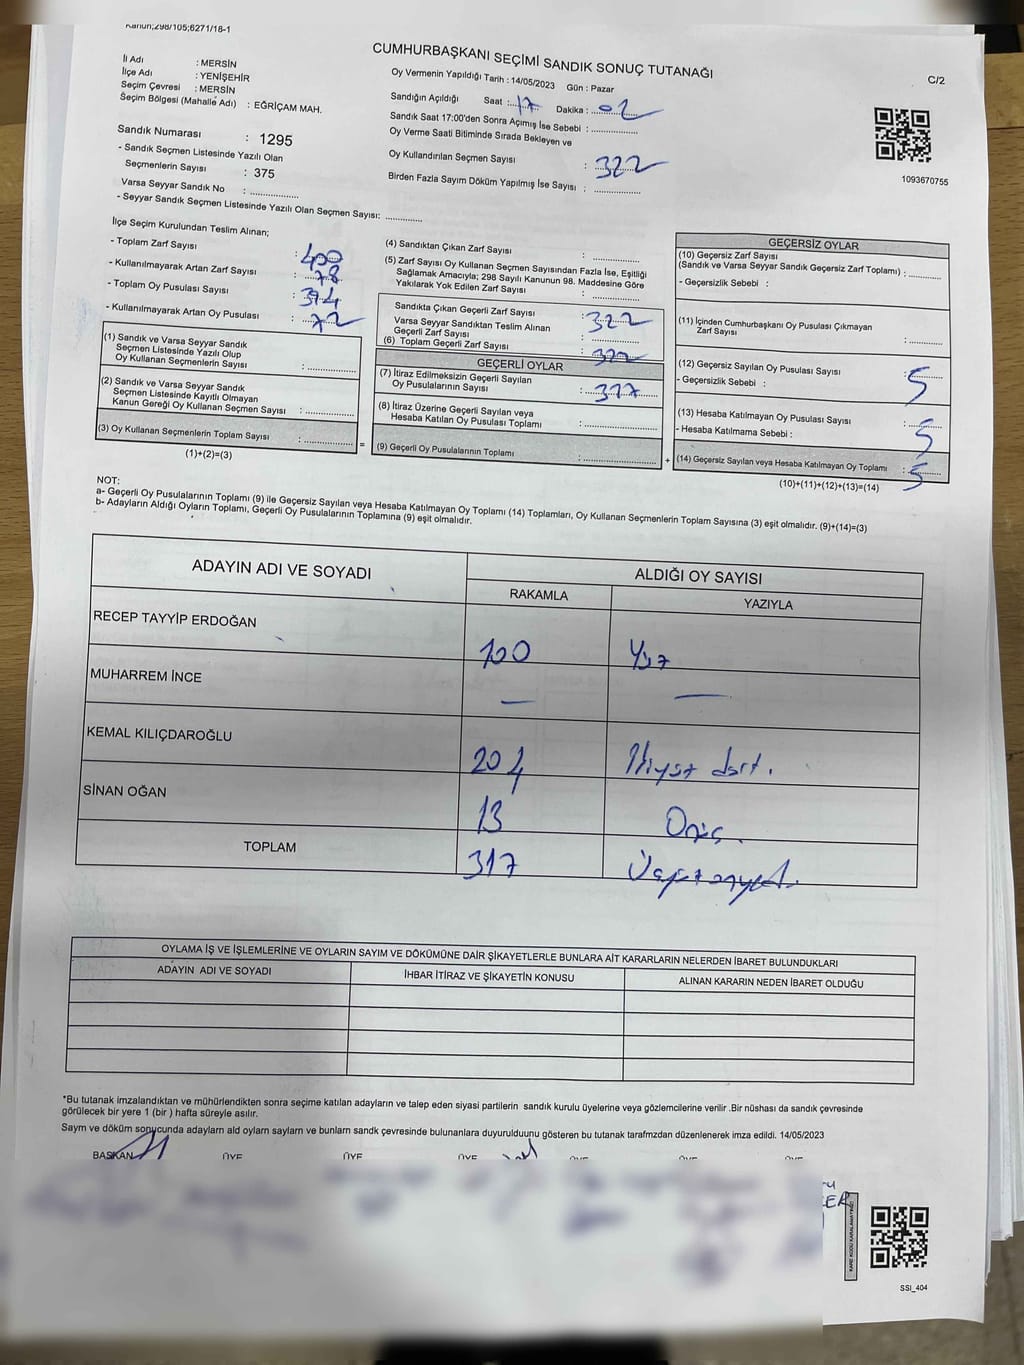 Kanun;298/105;6271/18-1
CUMHURBAŞKANI SEÇİMİ SANDIK SONUÇ TUTANAĞI
C/2
İl Adı : MERSİN
İlçe Adı : YENİŞEHİR
Seçim Çevresi : MERSİN
Seçim Bölgesi (Mahalle Adı) : EĞRİÇAM MAH.
Oy Vermenin Yapıldığı Tarih : 14/05/2023 Gün : Pazar
Sandığın Açıldığı Saat : 17 Dakika : 02
Sandık Saat 17:00'den Sonra Açımış İse Sebebi :
Oy Verme Saati Bitiminde Sırada Bekleyen ve
Oy Kullandırılan Seçmen Sayısı : 322
Birden Fazla Sayım Döküm Yapılmış İse Sayısı :
1093670755
Sandık Numarası : 1295
- Sandık Seçmen Listesinde Yazılı Olan
Seçmenlerin Sayısı : 375
Varsa Seyyar Sandık No :
- Seyyar Sandık Seçmen Listesinde Yazılı Olan Seçmen Sayısı:
İlçe Seçim Kurulundan Teslim Alınan;
- Toplam Zarf Sayısı : 400
- Kullanılmayarak Artan Zarf Sayısı : 78
- Toplam Oy Pusulası Sayısı : 394
- Kullanılmayarak Artan Oy Pusulası : 72
(1) Sandık ve Varsa Seyyar Sandık
Seçmen Listesinde Yazılı Olup
Oy Kullanan Seçmenlerin Sayısı :
(2) Sandık ve Varsa Seyyar Sandık
Seçmen Listesinde Kayıtlı Olmayan
Kanun Gereği Oy Kullanan Seçmen Sayısı :
(3) Oy Kullanan Seçmenlerin Toplam Sayısı :
(1)+(2)=(3)
(4) Sandıktan Çıkan Zarf Sayısı :
(5) Zarf Sayısı Oy Kullanan Seçmen Sayısından Fazla İse, Eşitliği
Sağlamak Amacıyla; 298 Sayılı Kanunun 98. Maddesine Göre
Yakılarak Yok Edilen Zarf Sayısı :
Sandıkta Çıkan Geçerli Zarf Sayısı : 322
Varsa Seyyar Sandıktan Teslim Alınan
Geçerli Zarf Sayısı :
(6) Toplam Geçerli Zarf Sayısı : 322
GEÇERLİ OYLAR
(7) İtiraz Edilmeksizin Geçerli Sayılan
Oy Pusulalarının Sayısı : 317
(8) İtiraz Üzerine Geçerli Sayılan veya
Hesaba Katılan Oy Pusulası Toplamı :
=
(9) Geçerli Oy Pusulalarının Toplamı :
+
GEÇERSİZ OYLAR
(10) Geçersiz Zarf Sayısı
(Sandık ve Varsa Seyyar Sandık Geçersiz Zarf Toplamı) :
- Geçersizlik Sebebi :
(11) İçinden Cumhurbaşkanı Oy Pusulası Çıkmayan
Zarf Sayısı :
(12) Geçersiz Sayılan Oy Pusulası Sayısı : 5
- Geçersizlik Sebebi :
(13) Hesaba Katılmayan Oy Pusulası Sayısı : 5
- Hesaba Katılmama Sebebi :
(14) Geçersiz Sayılan veya Hesaba Katılmayan Oy Toplamı : 5
(10)+(11)+(12)+(13)=(14)
NOT:
a- Geçerli Oy Pusulalarının Toplamı (9) ile Geçersiz Sayılan veya Hesaba Katılmayan Oy Toplamı (14) Toplamları, Oy Kullanan Seçmenlerin Toplam Sayısına (3) eşit olmalıdır. (9)+(14)=(3)
b- Adayların Aldığı Oyların Toplamı, Geçerli Oy Pusulalarının Toplamına (9) eşit olmalıdır.
ADAYIN ADI VE SOYADI ALDIĞI OY SAYISI
RAKAMLA YAZIYLA
RECEP TAYYİP ERDOĞAN 100 Yüz
MUHARREM İNCE — —
KEMAL KILIÇDAROĞLU 204 İkiyüz dört.
SİNAN OĞAN 13 Onüç.
TOPLAM 317 Üçyüzonyedi.
OYLAMA İŞ VE İŞLEMLERİNE VE OYLARIN SAYIM VE DÖKÜMÜNE DAİR ŞİKAYETLERLE BUNLARA AİT KARARLARIN NELERDEN İBARET BULUNDUKLARI
ADAYIN ADI VE SOYADI İHBAR İTİRAZ VE ŞİKAYETİN KONUSU ALINAN KARARIN NEDEN İBARET OLDUĞU
*Bu tutanak imzalandıktan ve mühürlendikten sonra seçime katılan adayların ve talep eden siyasi partilerin sandık kurulu üyelerine veya gözlemcilerine verilir .Bir nüshası da sandık çevresinde
görülecek bir yere 1 (bir ) hafta süreyle asılır.
Sayım ve döküm sonucunda adayların ald oyların sayların ve bunların sandk çevresinde bulunanlara duyurulduunu gösteren bu tutanak tarafmzdan düzenlenerek imza edildi. 14/05/2023
BAŞKAN ÜYE ÜYE ÜYE ÜYE ÜYE ÜYE
KARE KODU KARALAMAYINIZ
SSI_404